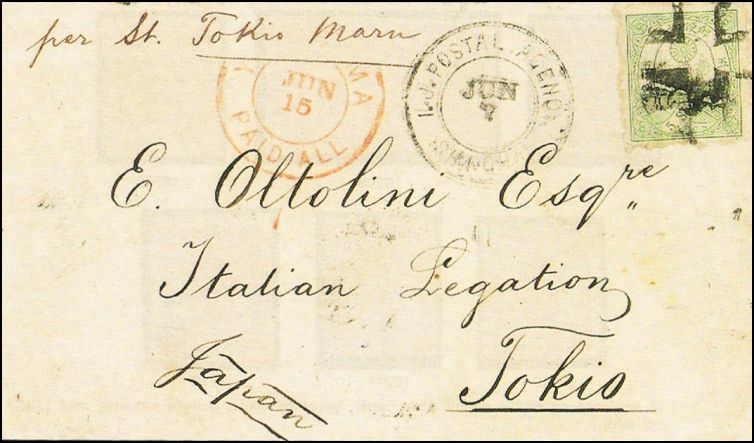 per St. Tokio Maru
MA
JUN
15
PAID ALL
I.J. POSTAL AGENCY
JUN
7
E. Oltolini Esqre
Italian Legation
Tokio
Japan